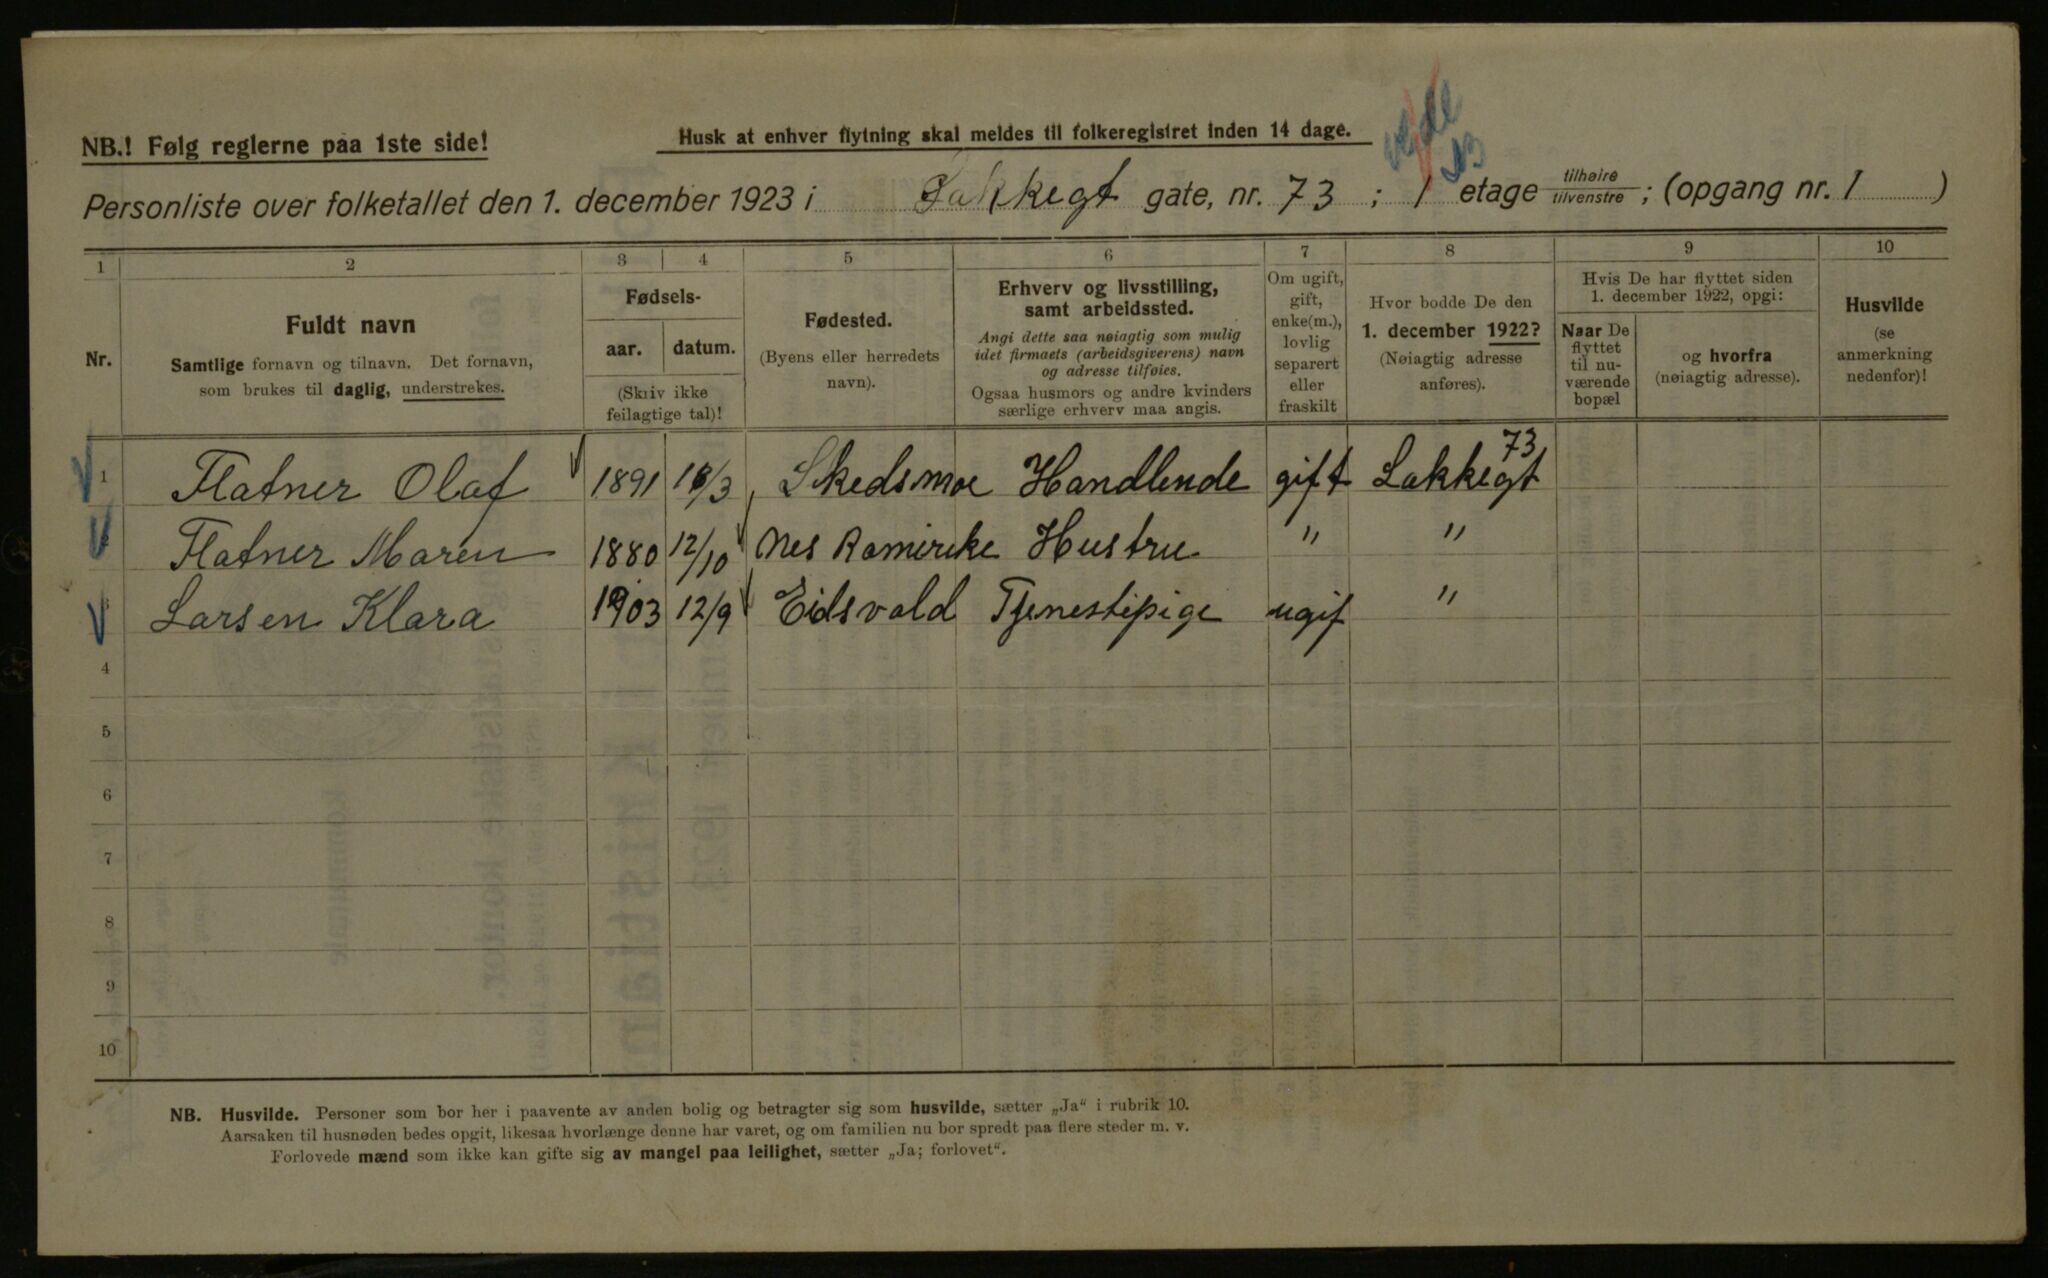 NB.! Følg reglerne paa 1ste side!
Husk at enhver flytning skal meldes til folkeregistret inden 14 dage.
Personliste over folketallet den 1. december 1923 i Lakkegt gate, nr. 73 ; 1 etage tilhøire tilvenstre ; (opgang nr. 1 )
1 2 3 4 5 6 7 8 9 10
Nr.
Fuldt navn
Samtlige fornavn og tilnavn. Det fornavn,
som brukes til daglig, understrekes.
Fødsels-
aar. datum.
(Skriv ikke
feilagtige tal)!
Fødested.
(Byens eller herredets
navn).
Erhverv og livsstilling,
samt arbeidssted.
Angi dette saa nøiagtig som mulig
idet firmaets (arbeidsgiverens) navn
og adresse tilføies.
Ogsaa husmors og andre kvinders
særlige erhverv maa angis.
Om ugift,
gift,
enke(m.),
lovlig
separert
eller
fraskilt
Hvor bodde De den
1. december 1922?
(Nøiagtig adresse
anføres).
Hvis De har flyttet siden
1. december 1922, opgi:
Naar De
flyttet
til nu-
værende
bopæl
og hvorfra
(nøiagtig adresse).
Husvilde
(se
anmerkning
nedenfor)!
1 Flatner Olaf 1891 16/3 Skedsmoe Handlende gift Lakkegt 73
2 Flatner Maren 1880 12/10 Nes Romerike Hustru " "
3 Larsen Klara 1903 12/9 Eidsvold Tjenestepige ugif "
4
5
6
7
8
9
10
NB. Husvilde. Personer som bor her i paavente av anden bolig og betragter sig som husvilde, sætter „Ja" i rubrik 10.
Aarsaken til husnøden bedes opgit, likesaa hvorlænge denne har varet, og om familien nu bor spredt paa flere steder m. v.
Forlovede mænd som ikke kan gifte sig av mangel paa leilighet, sætter „Ja; forlovet".